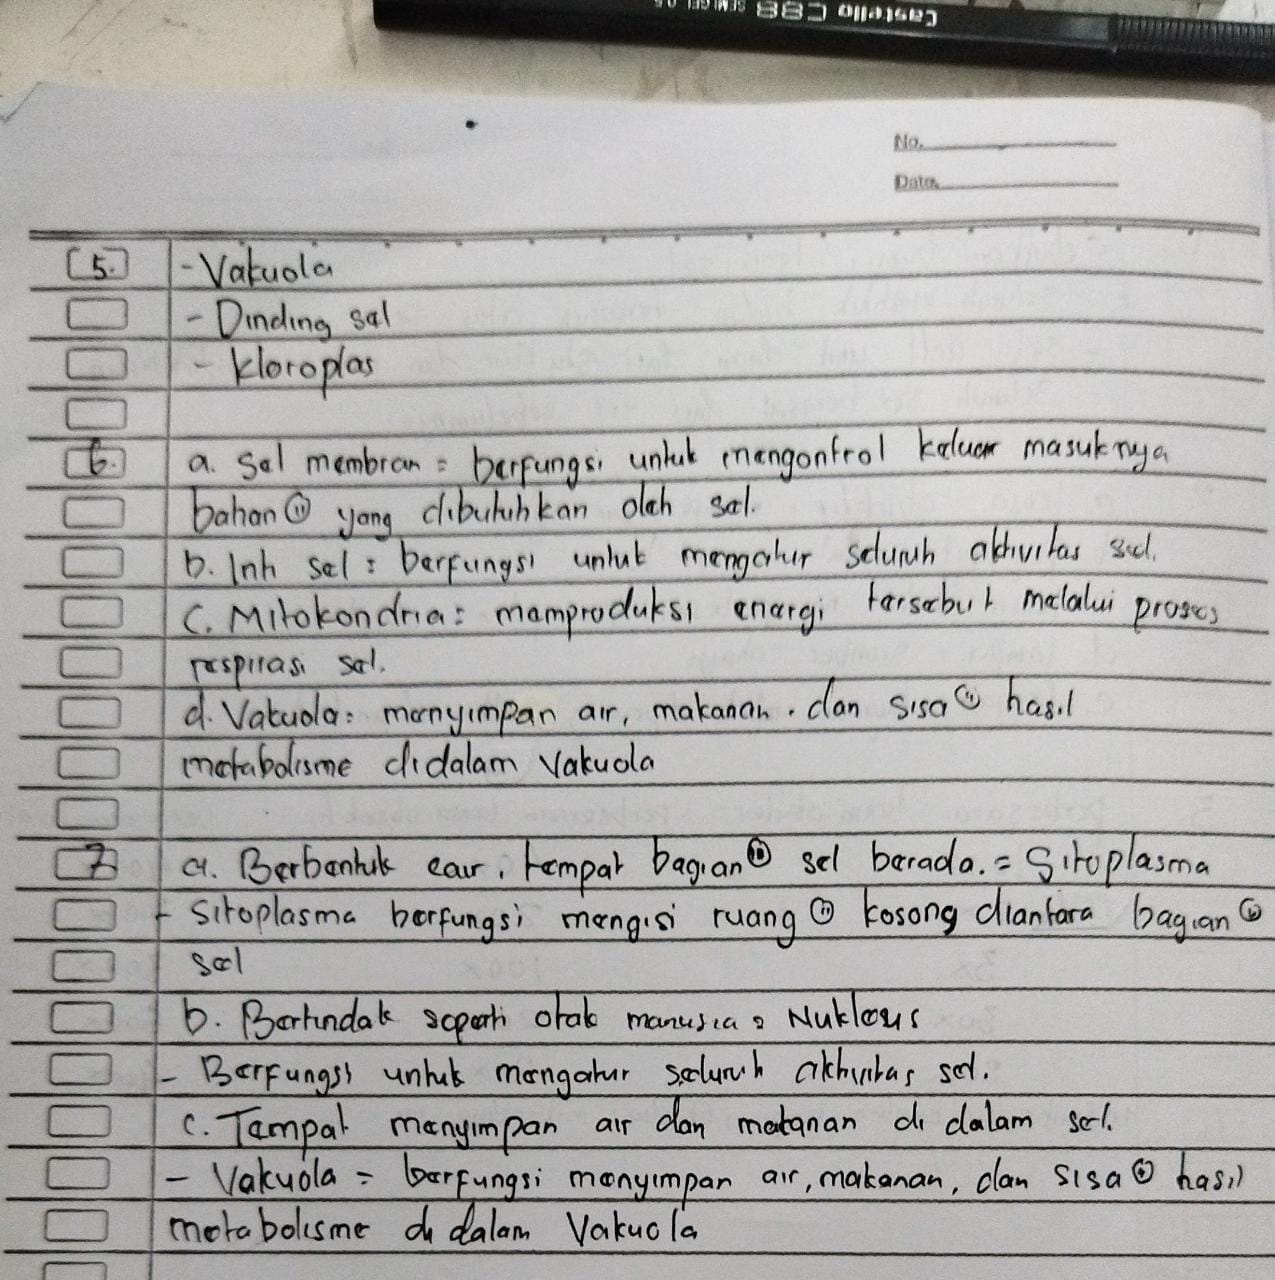 Castello C88 SEMI GEL 0.5
No.
Date.
5. - Vakuola
- Dinding sel
- kloroplas
6. a. Sel membran = berfungsi untuk mengontrol keluar masuknya
bahan⑪ yang dibutuhkan oleh sel.
b. Inti sel : berfungsi untuk mengatur seluruh aktivitas sel.
C. Mitokondria : memproduksi energi tersebut melalui proses
respirasi sel.
d. Vakuola : menyimpan air, makanan. dan sisa⑪ hasil
metabolisme didalam Vakuola
7 a. Berbentuk cair, tempat bagian⑪ sel berada. = Sitoplasma
- Sitoplasma berfungsi mengisi ruang⑪ kosong diantara bagian⑪
sel
b. Bertindak seperti otak manusia = Nukleus
- Berfungsi untuk mengatur seluruh aktivitas sel.
c. Tempat menyimpan air dan makanan di dalam sel.
- Vakuola = berfungsi menyimpan air, makanan, dan sisa⑪ hasil
metabolisme di dalam Vakuola